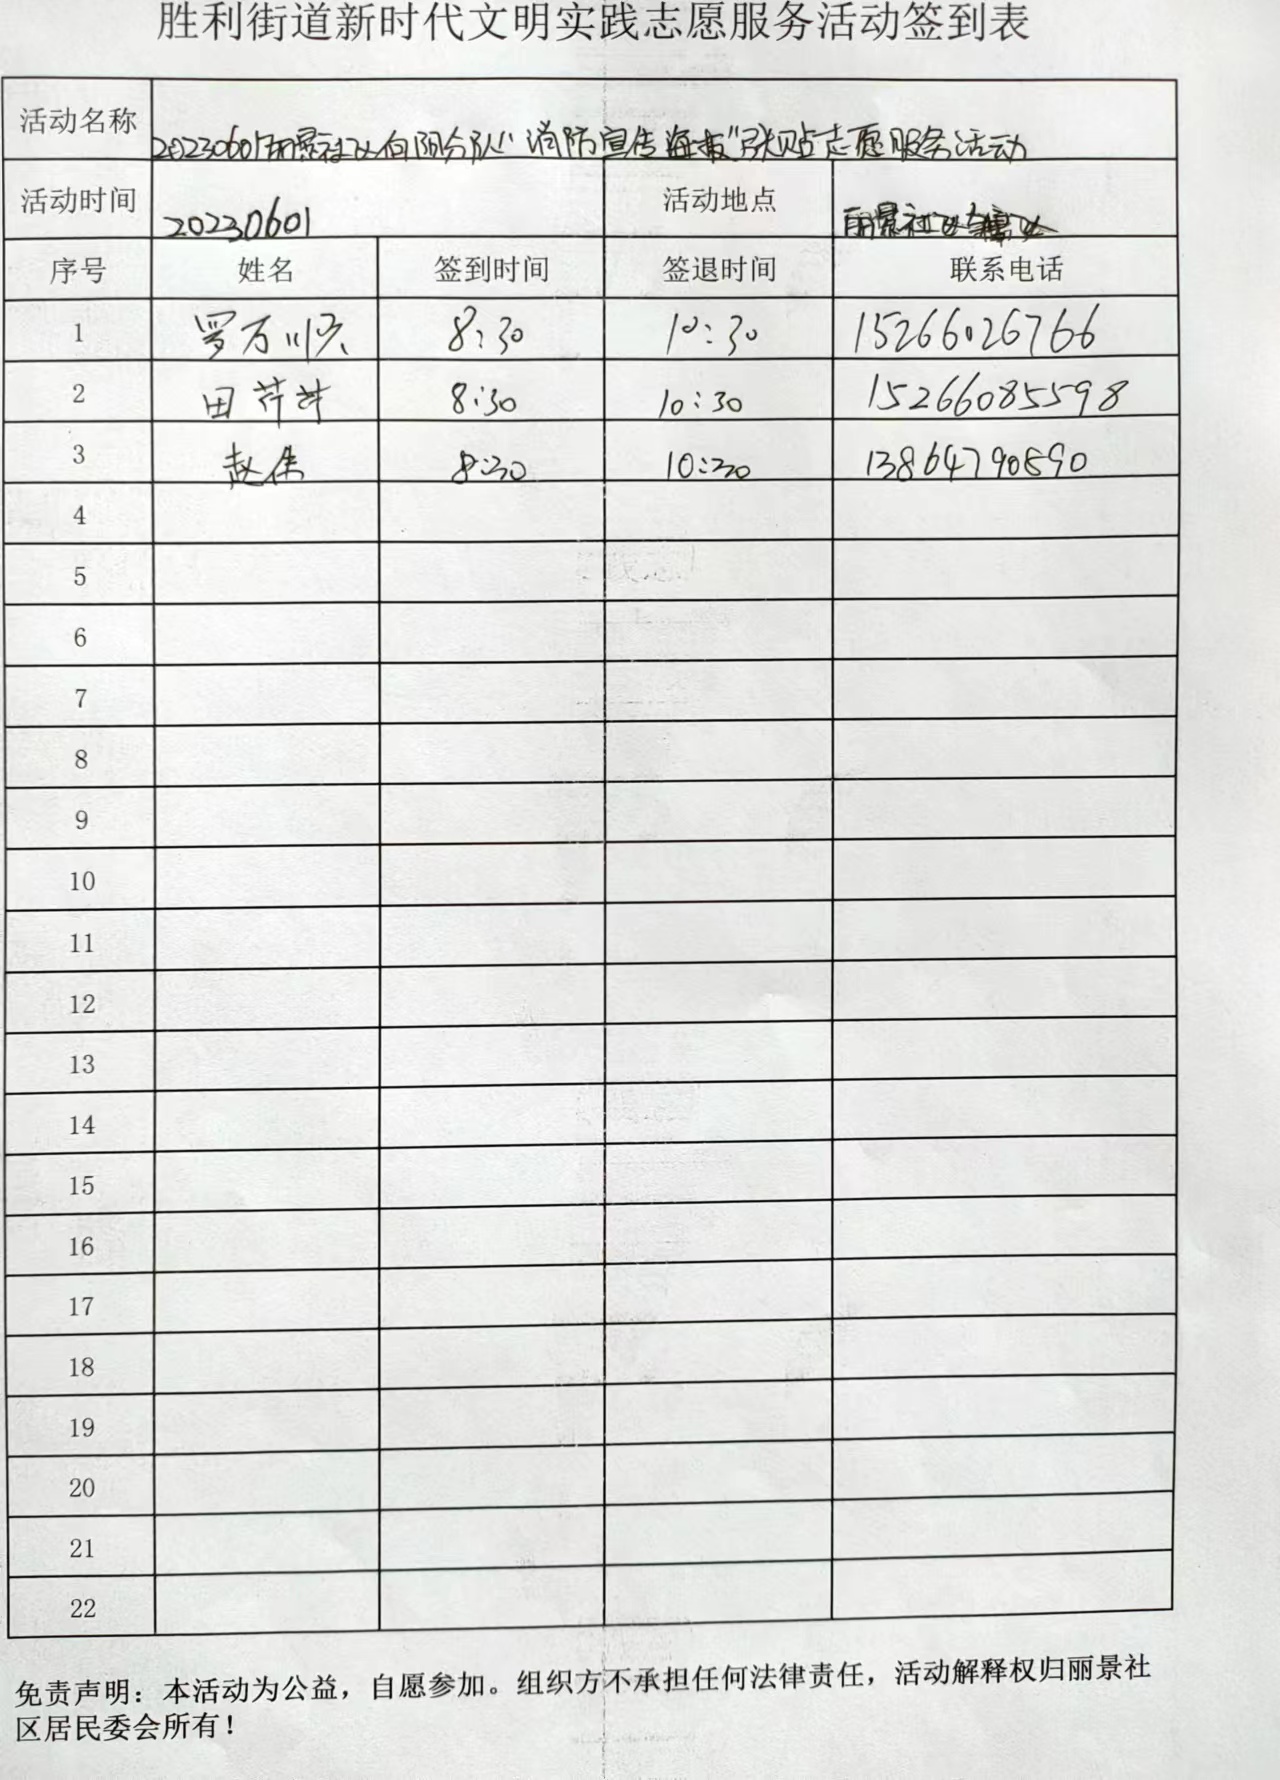 胜利街道新时代文明实践志愿服务活动签到表
活动名称 20230601丽景社区向阳分队“消防宣传海报”张贴志愿服务活动
活动时间 20230601 活动地点 丽景社区
序号 姓名 签到时间 签退时间 联系电话
1 罗万顺 8:30 10:30 15266026766
2 田芹 8:30 10:30 15266085598
3 赵 8:30 10:30 13864790590
4
5
6
7
8
9
10
11
12
13
14
15
16
17
18
19
20
21
22
免责声明：本活动为公益，自愿参加。组织方不承担任何法律责任，活动解释权归丽景社
区居民委会所有！